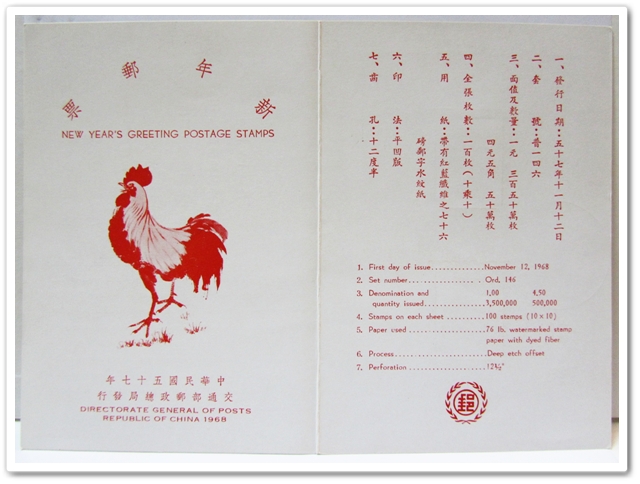 新年郵票
NEW YEAR'S GREETING POSTAGE STAMPS
中華民國五十七年
交通部郵政總局發行
DIRECTORATE GENERAL OF POSTS
REPUBLIC OF CHINA 1968
一、發行日期：五十七年十一月十二日
二、套 號：普一四六
三、面值及數量：一元 三百五十萬枚
四元五角 五十萬枚
四、全張枚數：一百枚(十乘十)
五、用 紙：帶有紅藍纖維之七十六
磅郵字水紋紙
六、印 法：平凹版
七、齒 孔：十二度半
1. First day of issue..............November 12, 1968
2. Set number.................... Ord, 146
3. Denomination and 1,00 4,50
quantity issued..............3,500,000 500,000
4. Stamps on each sheet............100 stamps (10×10)
5. Paper used....................76 lb, watermarked stamp
paper with dyed fiber
6. Process........................Deep etch offset
7. Perforation....................12½"
郵